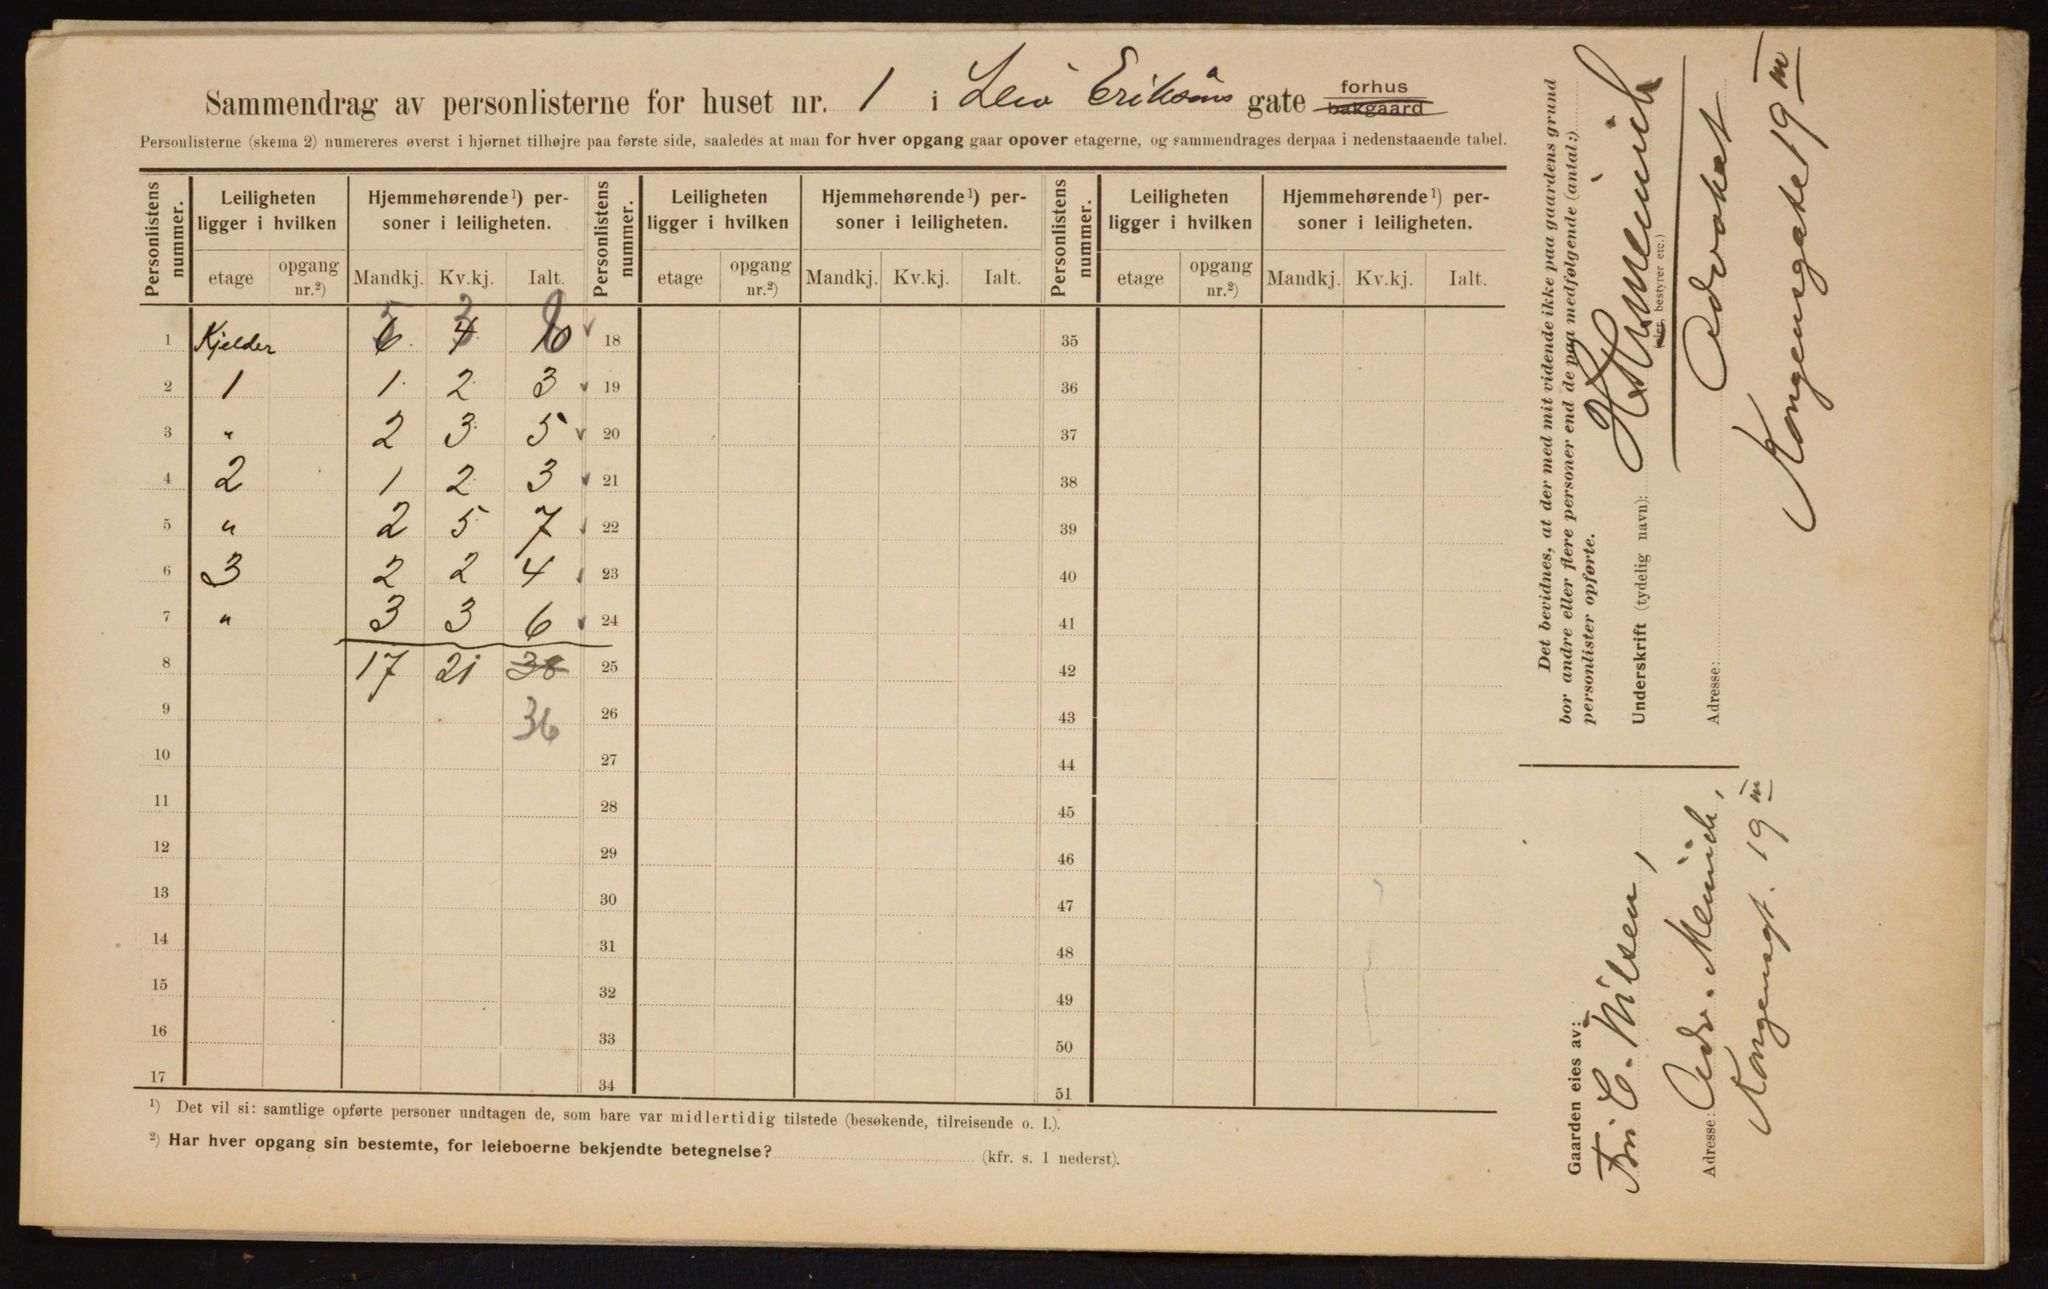 Sammendrag av personlisterne for huset nr. 1 i Leiv Eriksøns gate forhus bakgaard
Personlisterne (skema 2) numereres øverst i hjørnet tilhøjre paa første side, saaledes at man for hver opgang gaar opover etagerne, og sammendrages derpaa i nedenstaaende tabel.
Personlistens nummer. Leiligheten ligger i hvilken Hjemmehørende¹) personer i leiligheten. Personlistens nummer. Leiligheten ligger i hvilken Hjemmehørende¹) personer i leiligheten. Personlistens nummer. Leiligheten ligger i hvilken Hjemmehørende¹) personer i leiligheten.
etage opgang nr.²) Mandkj. Kv.kj. Ialt. etage opgang nr.²) Mandkj. Kv.kj. Ialt. etage opgang nr.²) Mandkj. Kv.kj. Ialt.
1 Kjelder 6 4 10 18 35
5 3 8
2 1 1 2 3 19 36
3 " 2 3 5 20 37
4 2 1 2 3 21 38
5 " 2 5 7 22 39
6 3 2 2 4 23 40
7 " 3 3 6 24 41
8 17 21 38 25 42
9 36 26 43
10 27 44
11 28 45
12 29 46
13 30 47
14 31 48
15 32 49
16 33 50
17 34 51
¹) Det vil si: samtlige opførte personer undtagen de, som bare var midlertidig tilstede (besøkende, tilreisende o. l.).
²) Har hver opgang sin bestemte, for leieboerne bekjendte betegnelse? (kfr. s. 1 nederst).
Det bevidnes, at der med mit vidende ikke paa gaardens grund
bor andre eller flere personer end de paa medfølgende (antal:)
personlister opførte.
Underskrift (tydelig navn): H Meinich
(eier, bestyrer etc.)
Advokat
Adresse: Kongensgate 19 III
Gaarden eies av:
Frk C. Nilsen,
Adresse: Adv. Meinich,
Kongensgt. 19 III